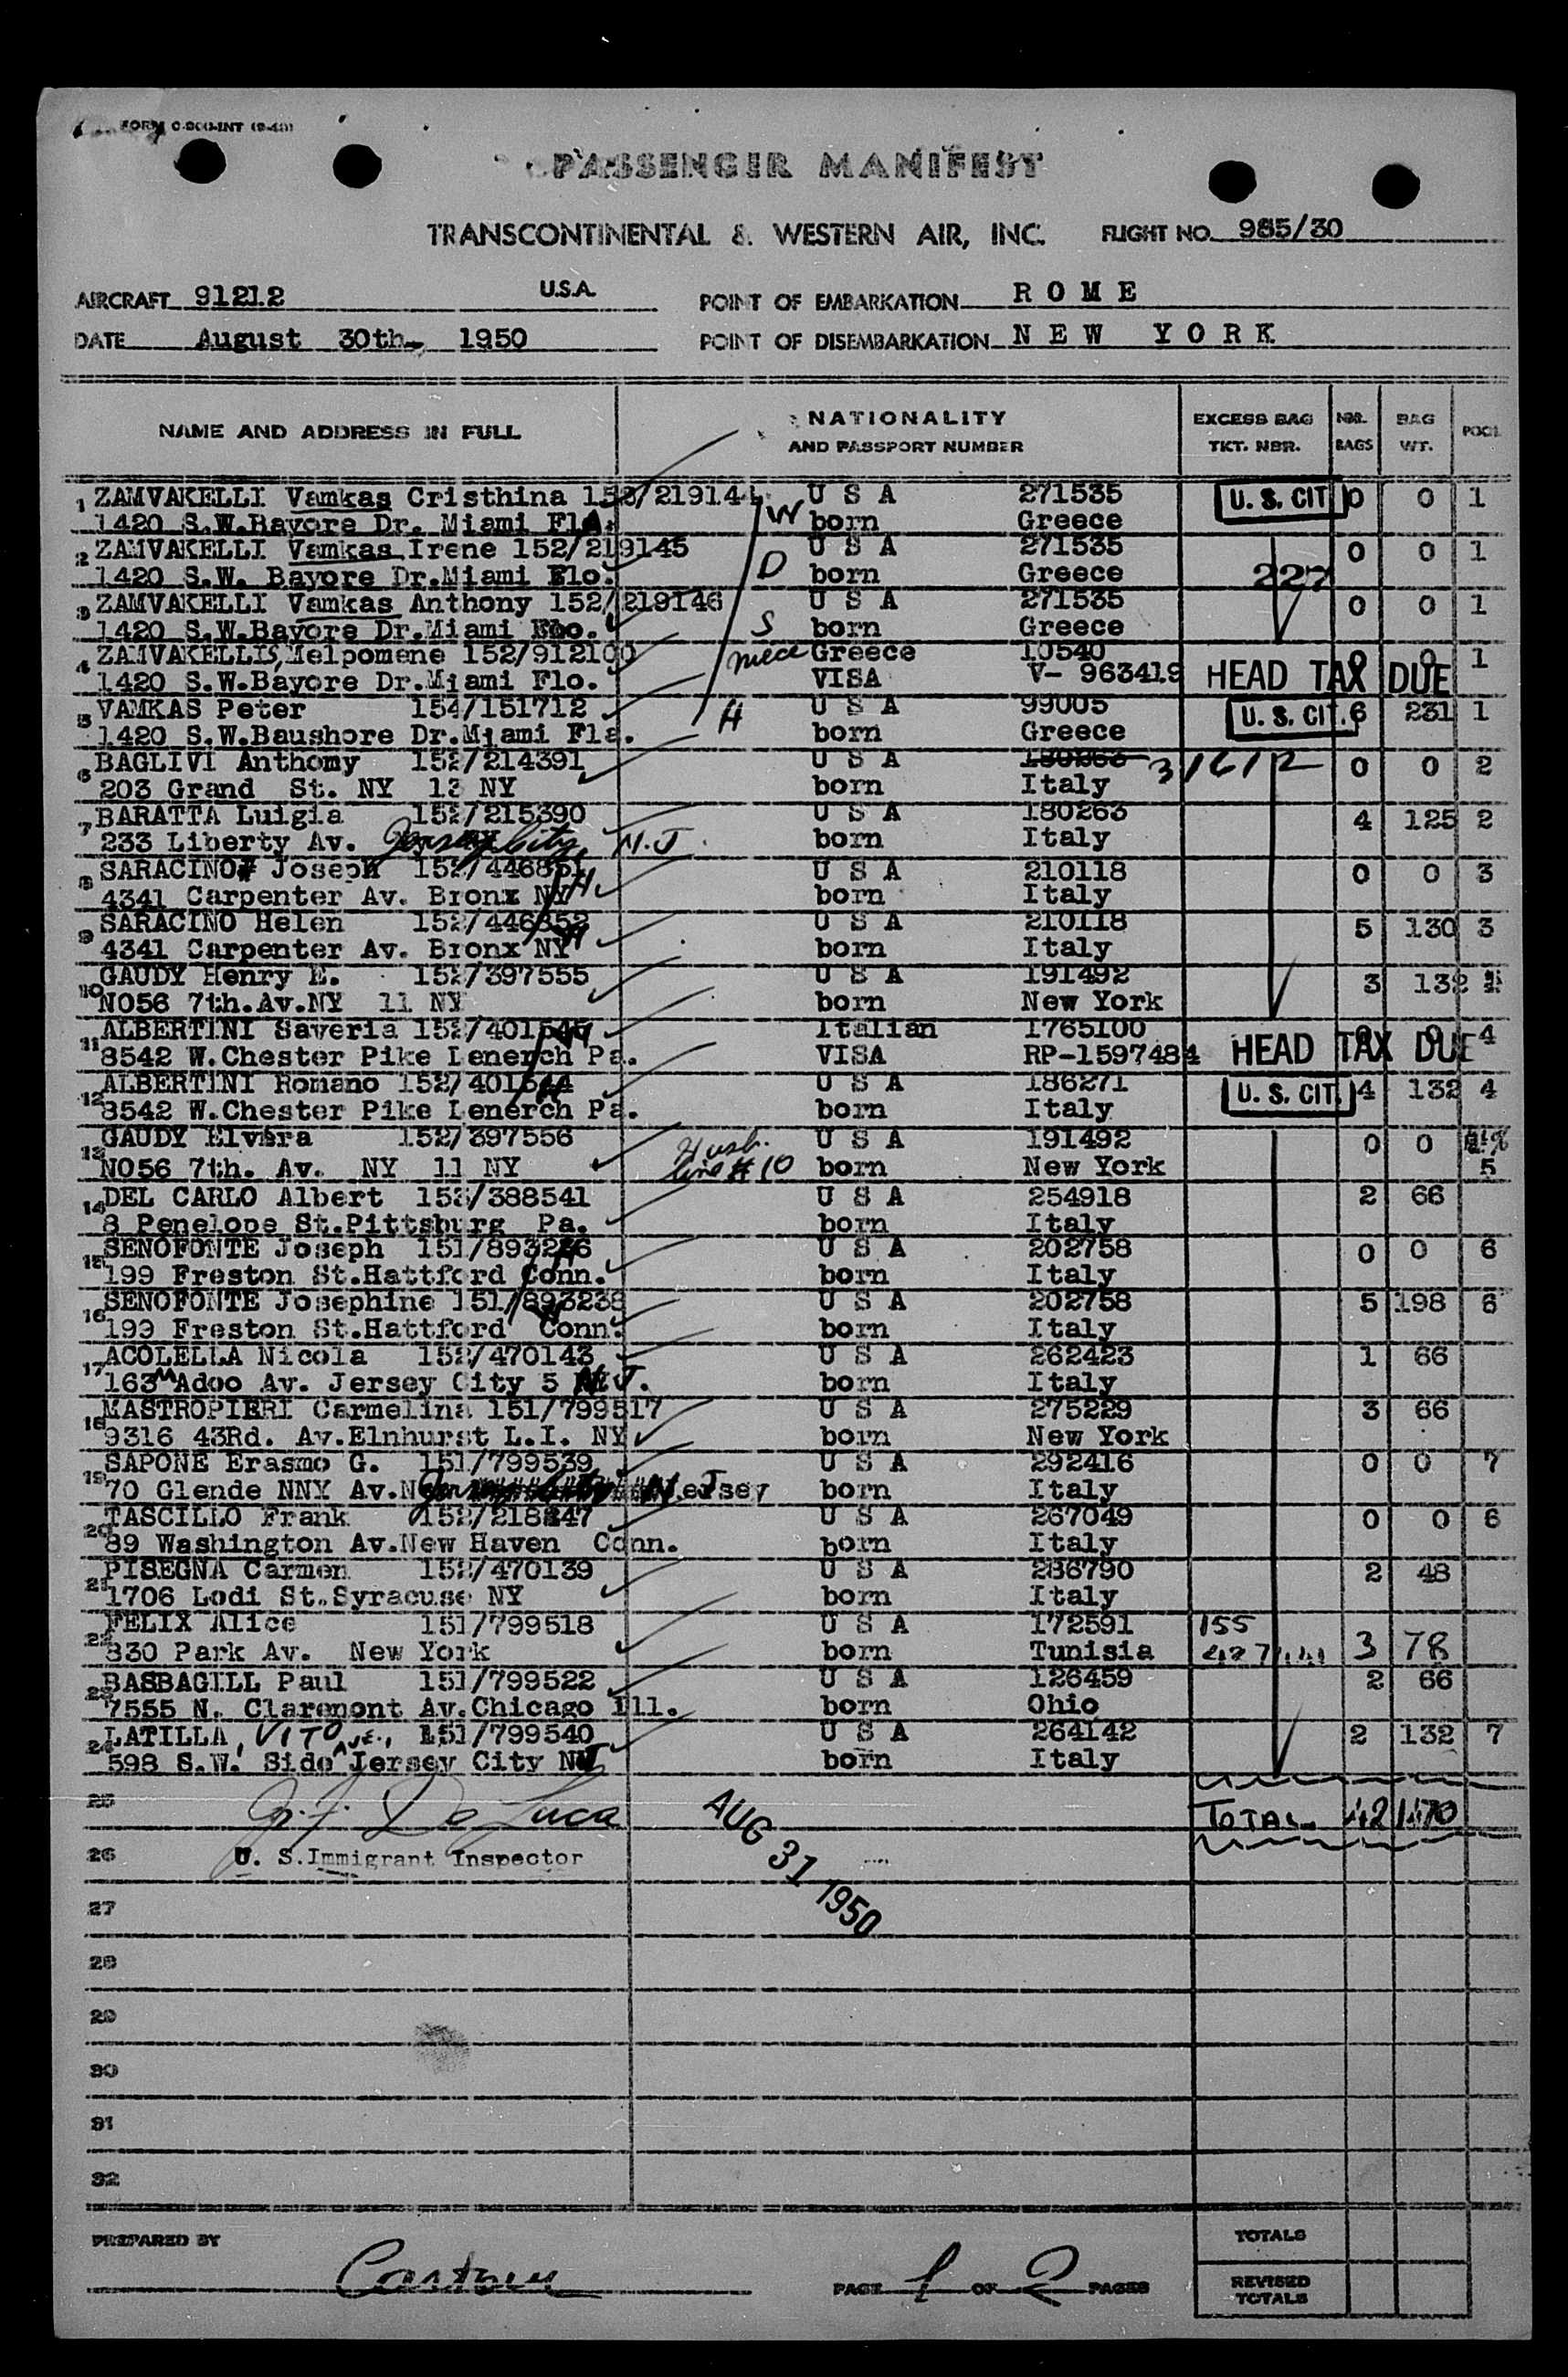 FORM
PASSENGER MANIFEST
TRANSCONTINENTAL & WESTERN AIR, INC. FLIGHT NO. 985/30
AIRCRAFT 91212 U.S.A. POINT OF EMBARKATION ROME
DATE August 30th- 1950 POINT OF DISEMBARKATION NEW YORK
NAME AND ADDRESS IN FULL NATIONALITY AND PASSPORT NUMBER EXCESS BAG TKT. NBR. NBR. BAGS BAG WT. POOL
1 ZAMVAKELLI Vamkas Cristhina 152/219144 U S A 271535 U. S. CIT 0 0 1
1420 S.W.Bayore Dr. Miami Fla. W born Greece
2 ZAMVAKELLI Vamkas Irene 152/219145 U S A 271535 0 0 1
1420 S.W. Bayore Dr.Miami Flo. D born Greece 227
3 ZAMVAKELLI Vamkas Anthony 152/219146 U S A 271535 0 0 1
1420 S.W.Bayore Dr.Miami Flo. S born Greece
4 ZAMVAKELLIS, Melpomene 152/912100 niece Greece 10540 0 0 1
1420 S.W.Bayore Dr.Miami Flo. VISA V- 963419 HEAD TAX DUE
5 VAMKAS Peter 154/151712 H U S A 99005 U. S. CIT. 6 231 1
1420 S.W.Baushore Dr.Miami Fla. born Greece
6 BAGLIVI Anthomy 152/214391 U S A 180263 31612 0 0 2
203 Grand St. NY 13 NY born Italy
7 BARATTA Luigia 152/215390 U S A 180263 4 125 2
233 Liberty Av. Jersey City, N.J. born Italy
8 SARACINO# Joseph 152/446851 H U S A 210118 0 0 3
4341 Carpenter Av. Bronx NY born Italy
9 SARACINO Helen 152/446852 U S A 210118 5 130 3
4341 Carpenter Av. Bronx NY W born Italy
10 GAUDY Henry E. 152/397555 U S A 191492 3 132
NO56 7th.Av.NY 11 NY born New York
11 ALBERTINI Saveria 152/401545 W Italian 1765100 0 0 4
8542 W.Chester Pike Lenerch Pa. VISA RP-1597484 HEAD TAX DUE
12 ALBERTINI Romano 152/401544 H U S A 186271 U. S. CIT. 4 132 4
8542 W.Chester Pike Lenerch Pa. born Italy
13 GAUDY Elvera 152/397556 Husb. U S A 191492 0 0
NO56 7th. Av. NY 11 NY line # 10 born New York 5
14 DEL CARLO Albert 153/388541 U S A 254918 2 66
8 Penelope St.Pittsburg Pa. born Italy
15 SENOFONTE Joseph 151/893236 H U S A 202758 0 0 6
199 Freston St.Hattford Conn. born Italy
16 SENOFONTE Josephine 151/893238 W U S A 202758 5 198 6
199 Freston St.Hattford Conn. born Italy
17 ACOLELLA Nicola 152/470143 U S A 262423 1 66
163 M Adoo Av. Jersey City 5 N.J. born Italy
18 MASTROPIERI Carmelina 151/799517 U S A 275229 3 66
9316 43Rd. Av.Elnhurst L.I. NY born New York
19 SAPONE Erasmo G. 151/799539 U S A 292416 0 0 7
70 Glende NNY Av. Jersey City N.J. born Italy
20 TASCILLO Frank 152/218247 U S A 267049 0 0 6
89 Washington Av.New Haven Conn. born Italy
21 PISEGNA Carmen 152/470139 U S A 286790 2 48
1706 Lodi St.Syracuse NY born Italy
22 FELIX Alice 151/799518 U S A 172591 155 3 78
830 Park Av. New York born Tunisia
23 BASBAGILL Paul 151/799522 U S A 126459 2 66
7555 N. Claremont Av.Chicago Ill. born Ohio
24 LATILLA, VITO 151/799540 U S A 264142 2 132 7
598 S.W. Side Ave., Jersey City NJ born Italy
25 De Luca AUG 31 1950 TOTAL 42 1470
26 U. S.Immigrant Inspector
27
28
29
30
31
32
PREPARED BY PAGE 1 OF 2 PAGES
TOTALS
REVISED TOTALS